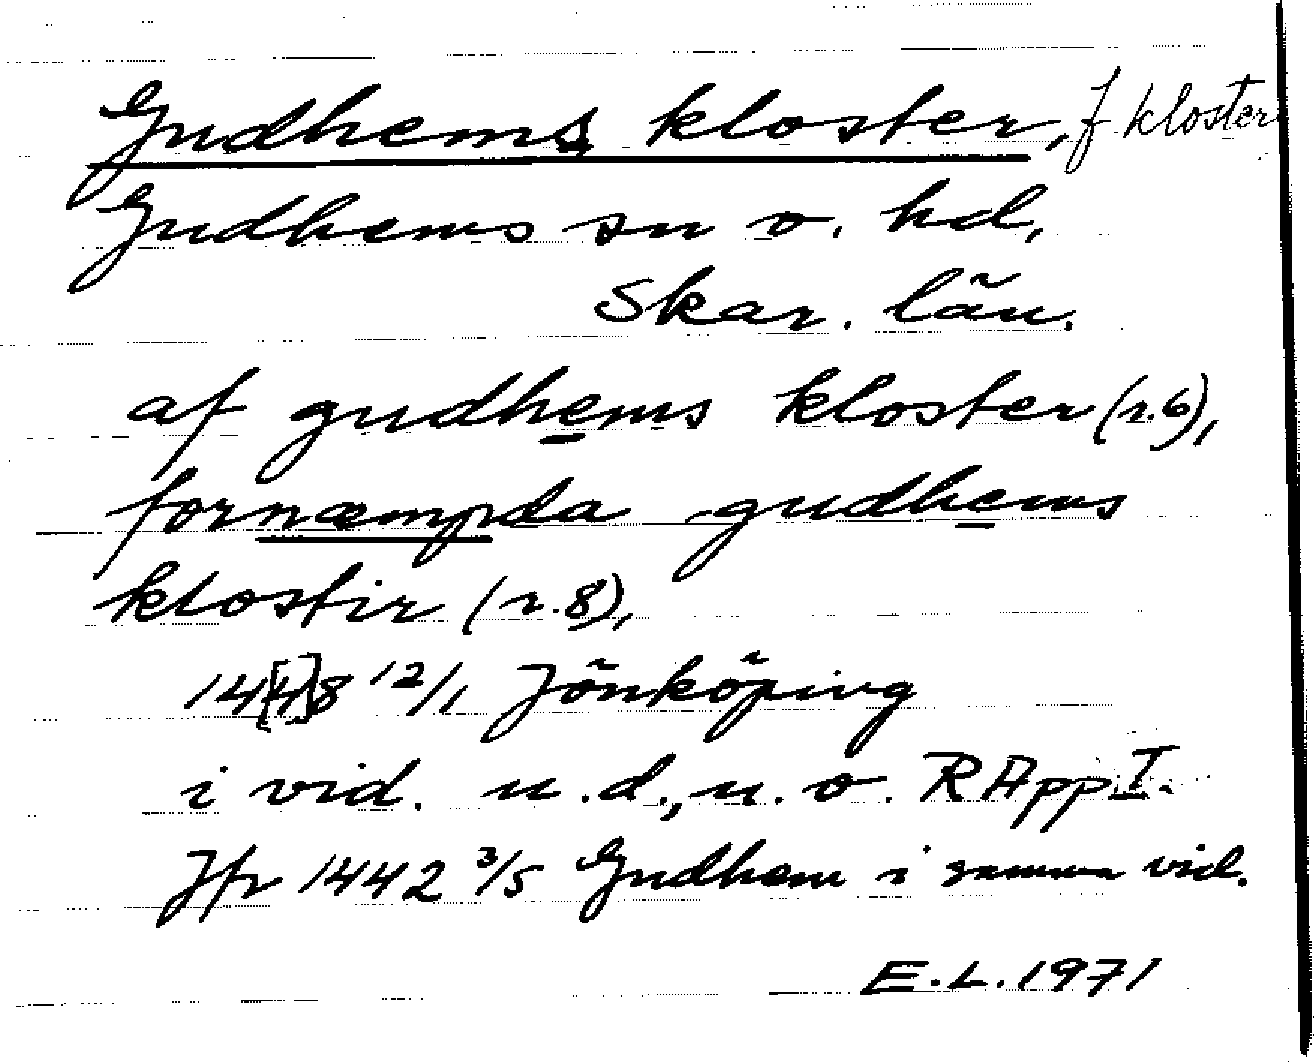 Gudhems kloster, f kloster
Gudhems sn o. hd,
Skar. län.
af gudhems kloster (r.6),
fornæmpda gudhems
klostir (r.8),
14[4]8 12/1 Jönköping
i vid. u.d., u.o. RApp I.
Jfr 1442 3/5 Gudhem i samma vid.
E.L. 1971